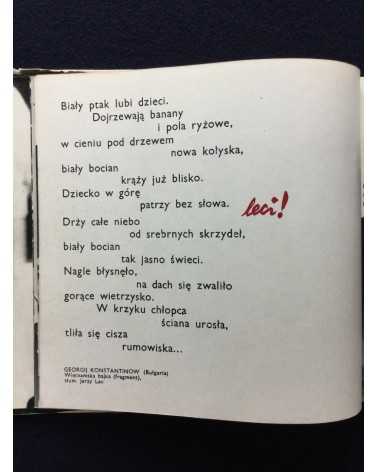 Biały ptak lubi dzieci.
Dojrzewają banany
i pola ryżowe,
w cieniu pod drzewem
nowa kolyska,
biały bocian
krąży już blisko.
Dziecko w górę
patrzy bez słowa.
leci!
Drży całe niebo
od srebrnych skrzydeł,
biały bocian
tak jasno świeci.
Nagle błysnęło,
na dach się zwaliło
gorące wietrzysko.
W krzyku chłopca
ściana urosła,
tliła się cisza
rumowiska...
GEORGIJ KONSTANTINOW (Bułgaria)
Wietnamska bajka (fragment),
tłum. Jerzy Lau